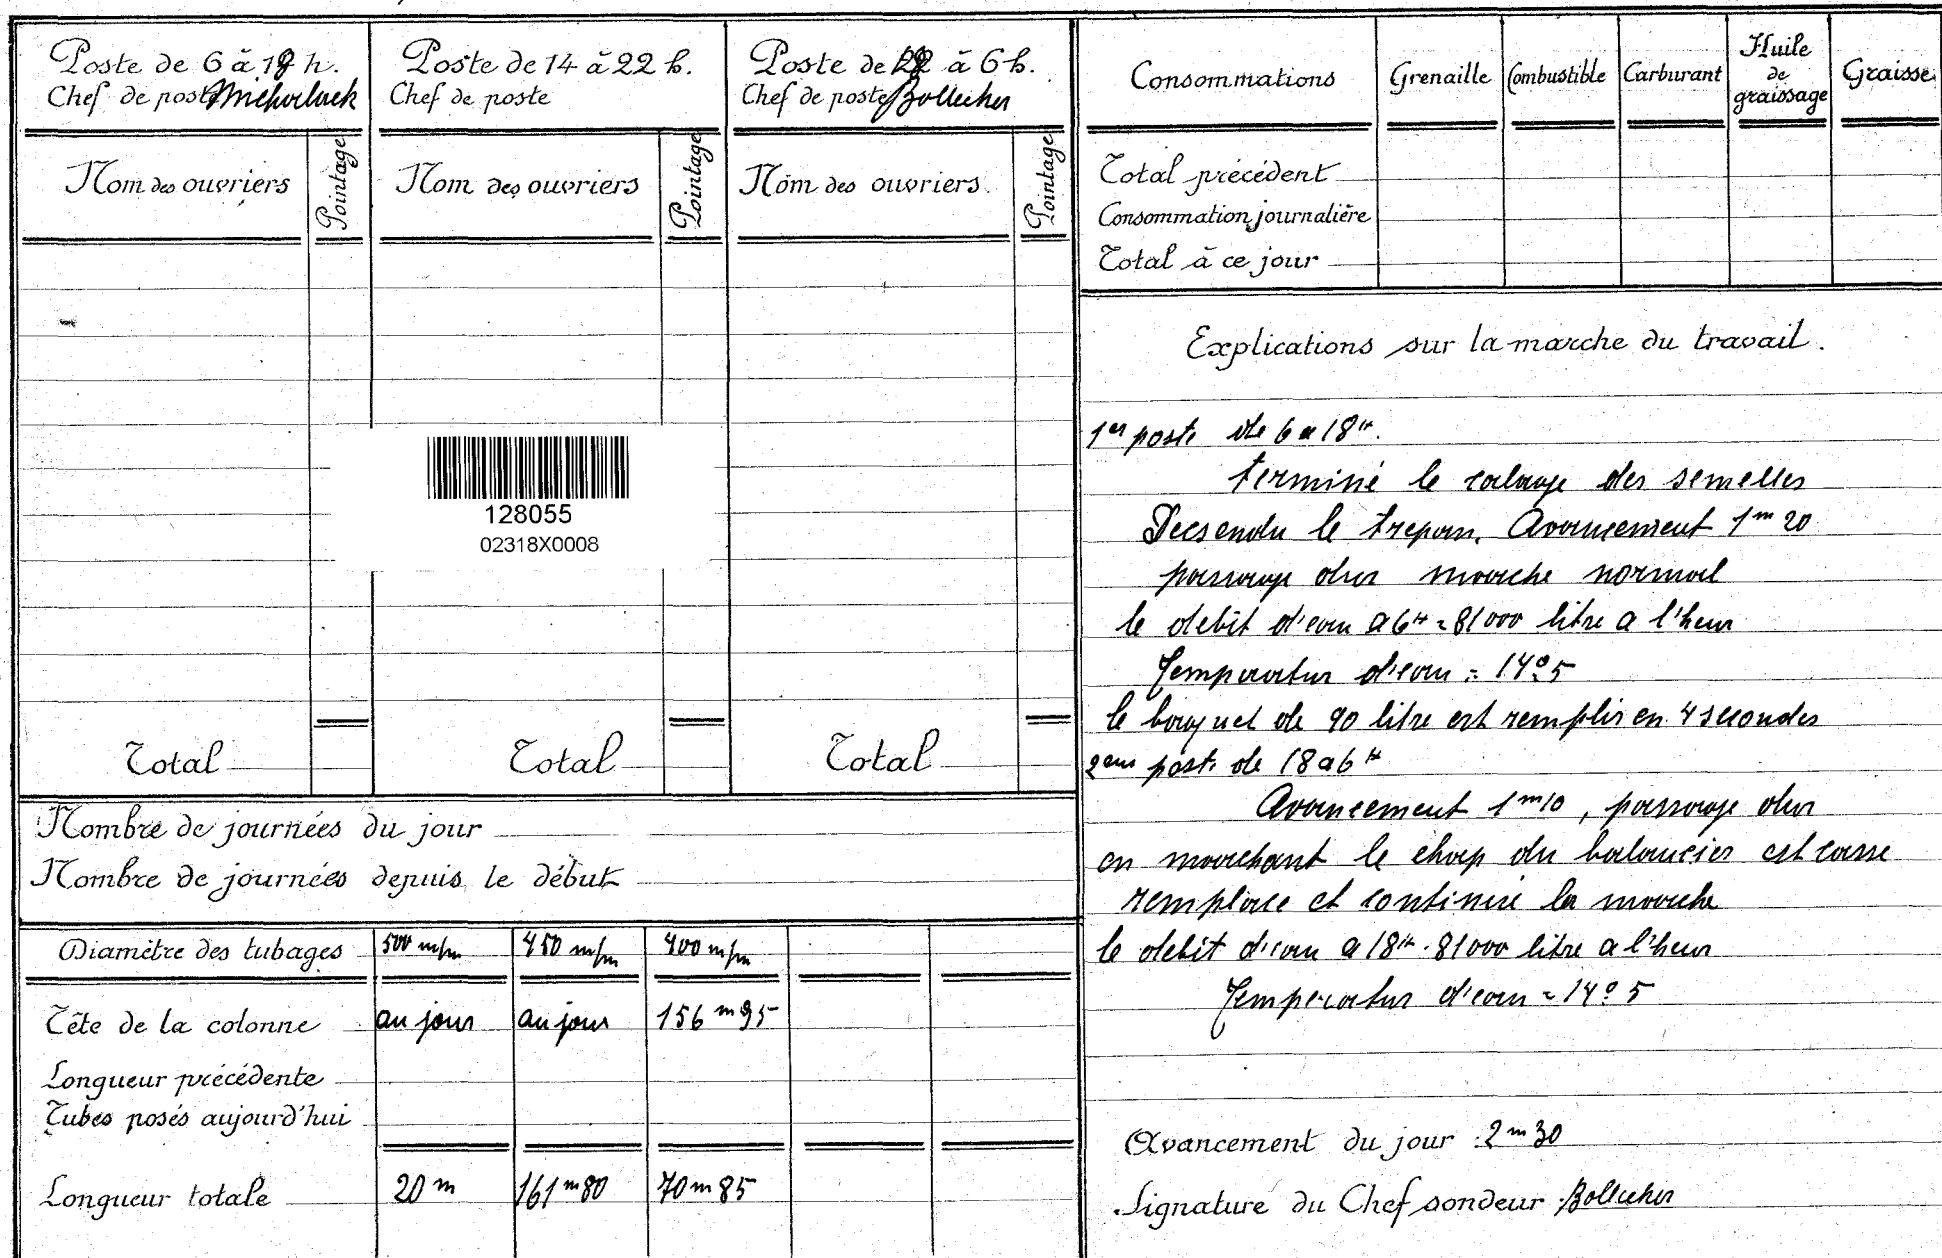 Poste de 6 à 18 h.
Chef de poste Michorlack
Nom des ouvriers
Pointage
Total
Poste de 14 à 22 h.
Chef de poste
Nom des ouvriers
Pointage
Total
Poste de à 6 h.
Chef de poste Bollecher
Nom des ouvriers.
Pointage
Total
128055
02318X0008
Nombre de journées du jour
Nombre de journées depuis le début
Diamètre des tubages 500 m/m 450 m/m 400 m/m
Tête de la colonne au jour au jour 156 m 95
Longueur précédente
Tubes posés aujourd'hui
Longueur totale 20 m 161 m 80 70 m 85
Consommations Grenaille Combustible Carburant Huile de graissage Graisse
Total précédent
Consommation journalière
Total à ce jour
Explications sur la marche du travail.
1er poste de 6 a 18 H.
terminé le calage des semelles
Decsendu le trepan. Avancement 1 m 20
passage dur marche normal
le debit d'eau a 6 H = 81000 litre a l'heur
Temperatur d'eau = 14° 5
le baquet de 90 litre est remplis en 4 secondes
2em post. de 18 a 6 H
Avancement 1 m 10, passage dur
en marchant le chap du balancier est casse
remplace et continué la marche
le debit d'eau a 18 H. 81000 litre a l'heur
Temperatur d'eau = 14° 5
Avancement du jour : 2 m 30
Signature du Chef sondeur : Bollecher